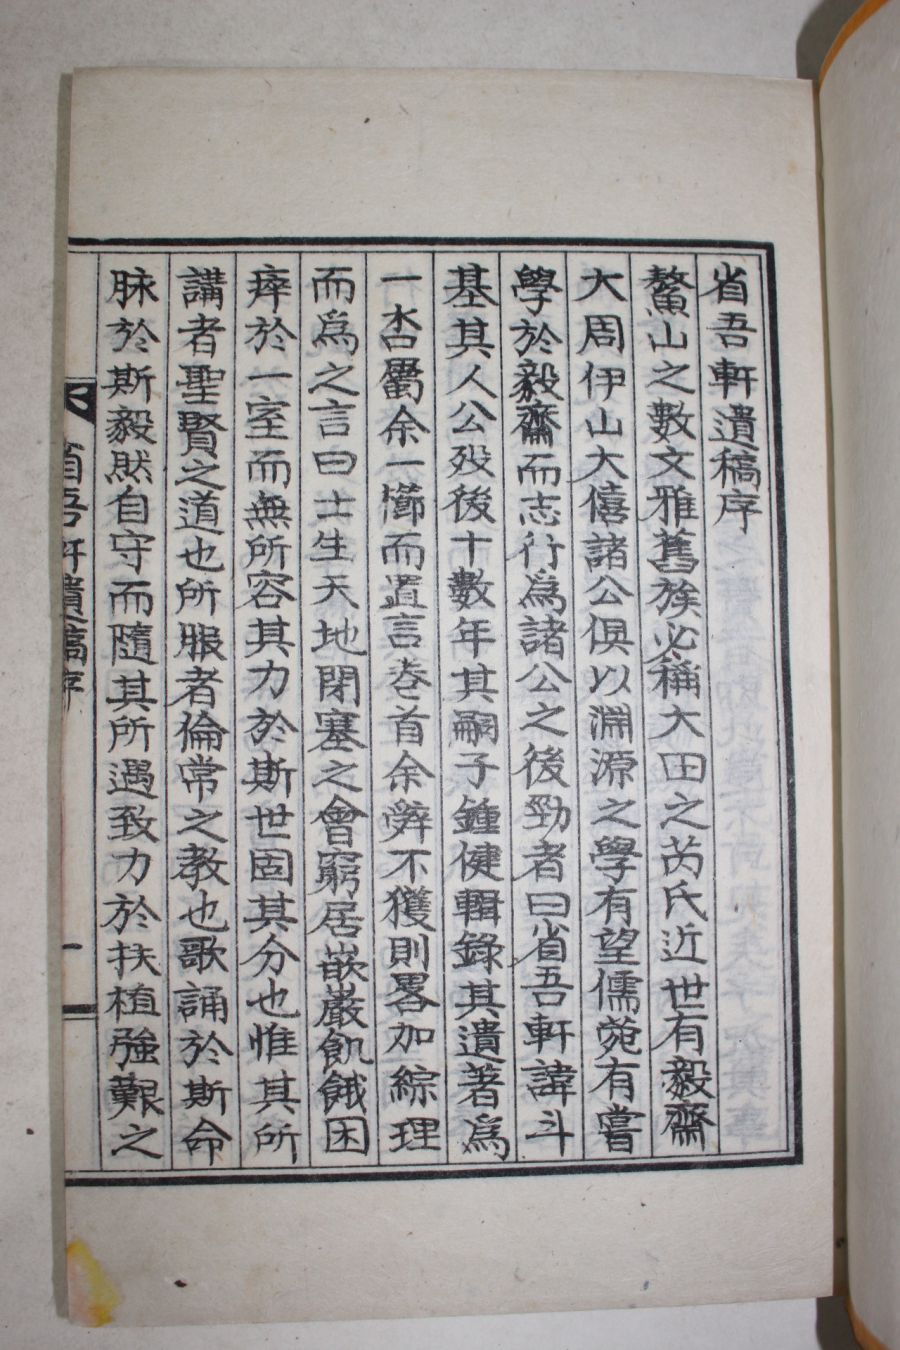 省吾軒遺稿序
鰲山之數文雅舊族必稱大田之芮氏近世有毅齋
大周伊山大僖諸公俱以淵源之學有望儒菀有嘗
學於毅齋而志行爲諸公之後勁者曰省吾軒諱斗
基其人公歿後十數年其嗣子鍾健輯錄其遺著爲
一呇屬余一櫛而置言卷首余辤不獲則畧加綜理
而爲之言曰士生天地閉塞之會窮居嵌巖飢餓困
瘁於一室而無所容其力於斯世固其分也惟其所
講者聖賢之道也所服者倫常之教也歌誦於斯命
脉於斯毅然自守而隨其所遇致力於扶植強艱之
省吾軒遺稿序
一